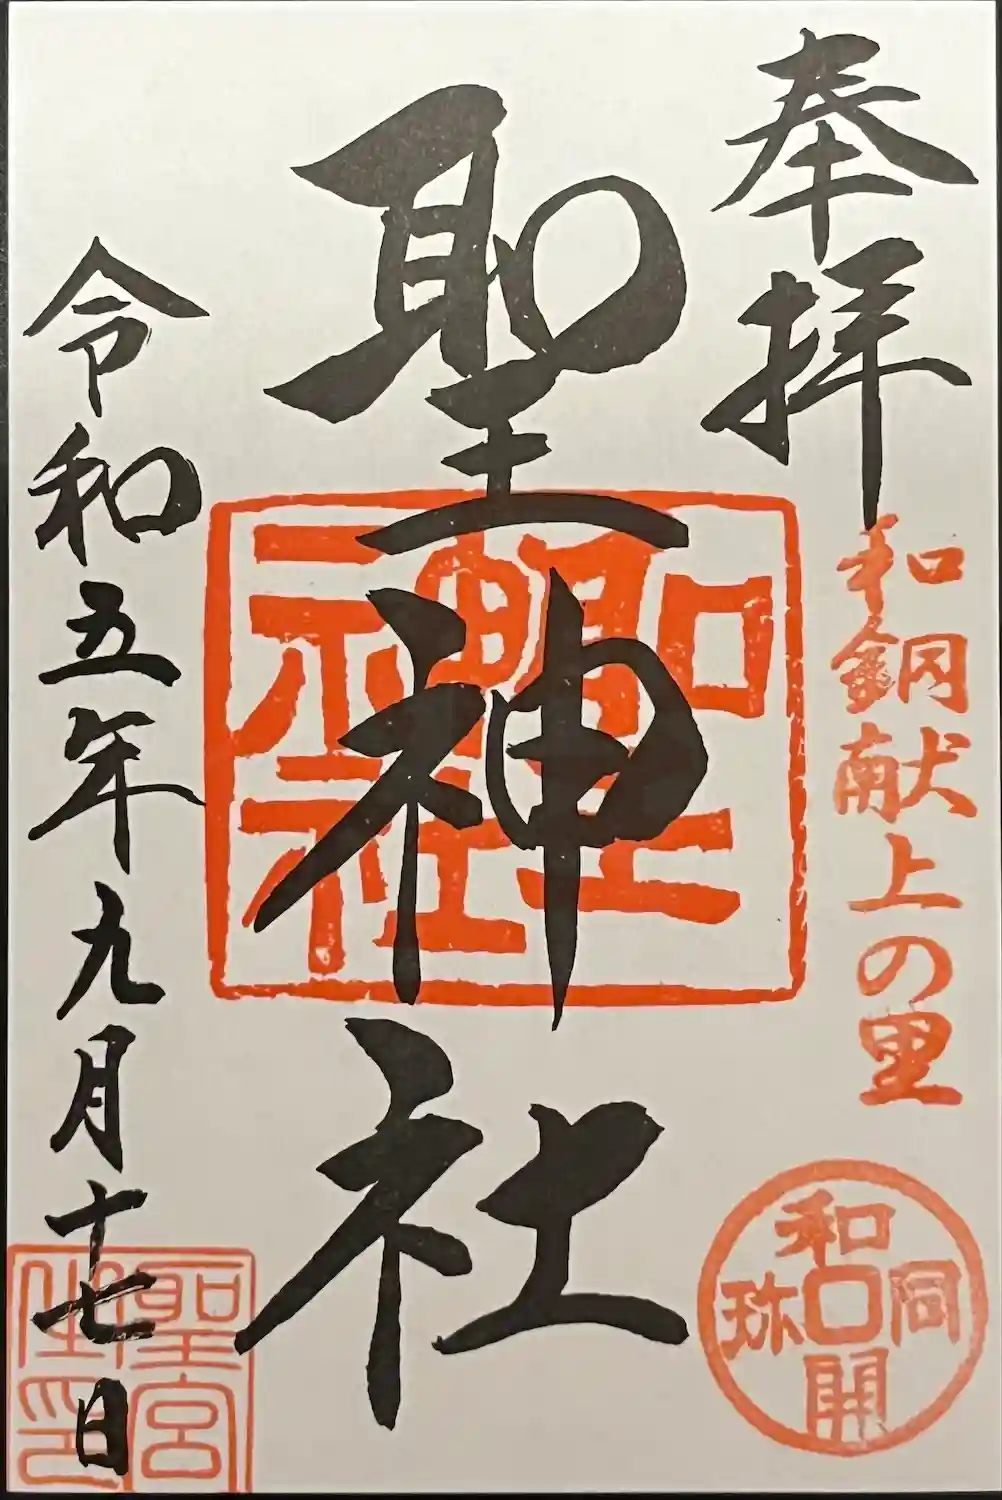 奉拝
和銅献上の里
和同開珎
聖神社
聖神社
令和五年九月十七日